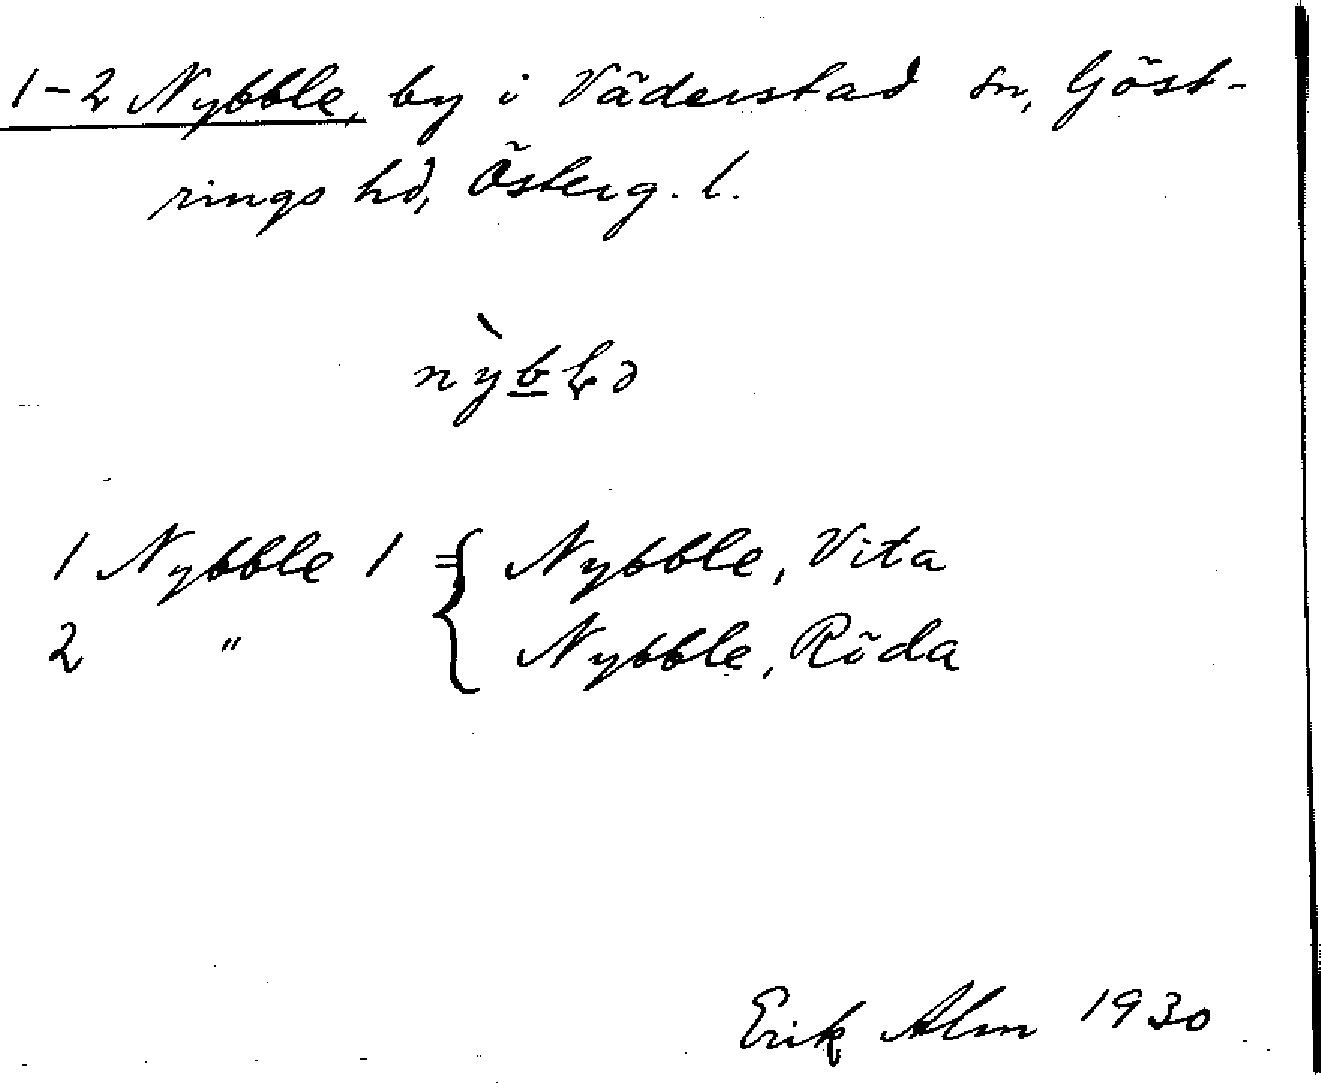 1-2 Nybble, by i Väderstad sn, Göst-
rings hd, Österg. l.
1 Nybble 1 = { Nybble, Vita
2 " Nybble, Röda
Erik Alm 1930